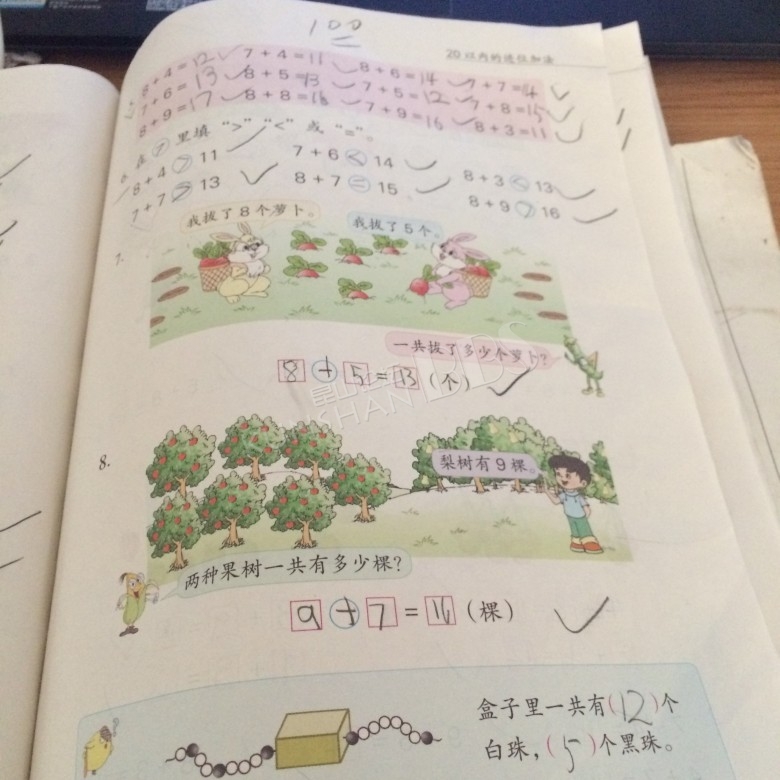 100
20以内的进位加法
8+4=12 7+4=11 8+6=14 7+7=14
7+6=13 8+5=13 7+5=12 7+8=15
8+9=17 8+8=16 7+9=16 8+3=11
6. 在○里填“>”“<”或“=”。
8+4>11 7+6<14 8+3<13
7+7>13 8+7=15 8+9>16
7.
我拔了8个萝卜。 我拔了5个。
一共拔了多少个萝卜?
8+5=13(个)
8.
梨树有9棵。
两种果树一共有多少棵?
9+7=16(棵)
盒子里一共有(12)个
白珠,(5)个黑珠。